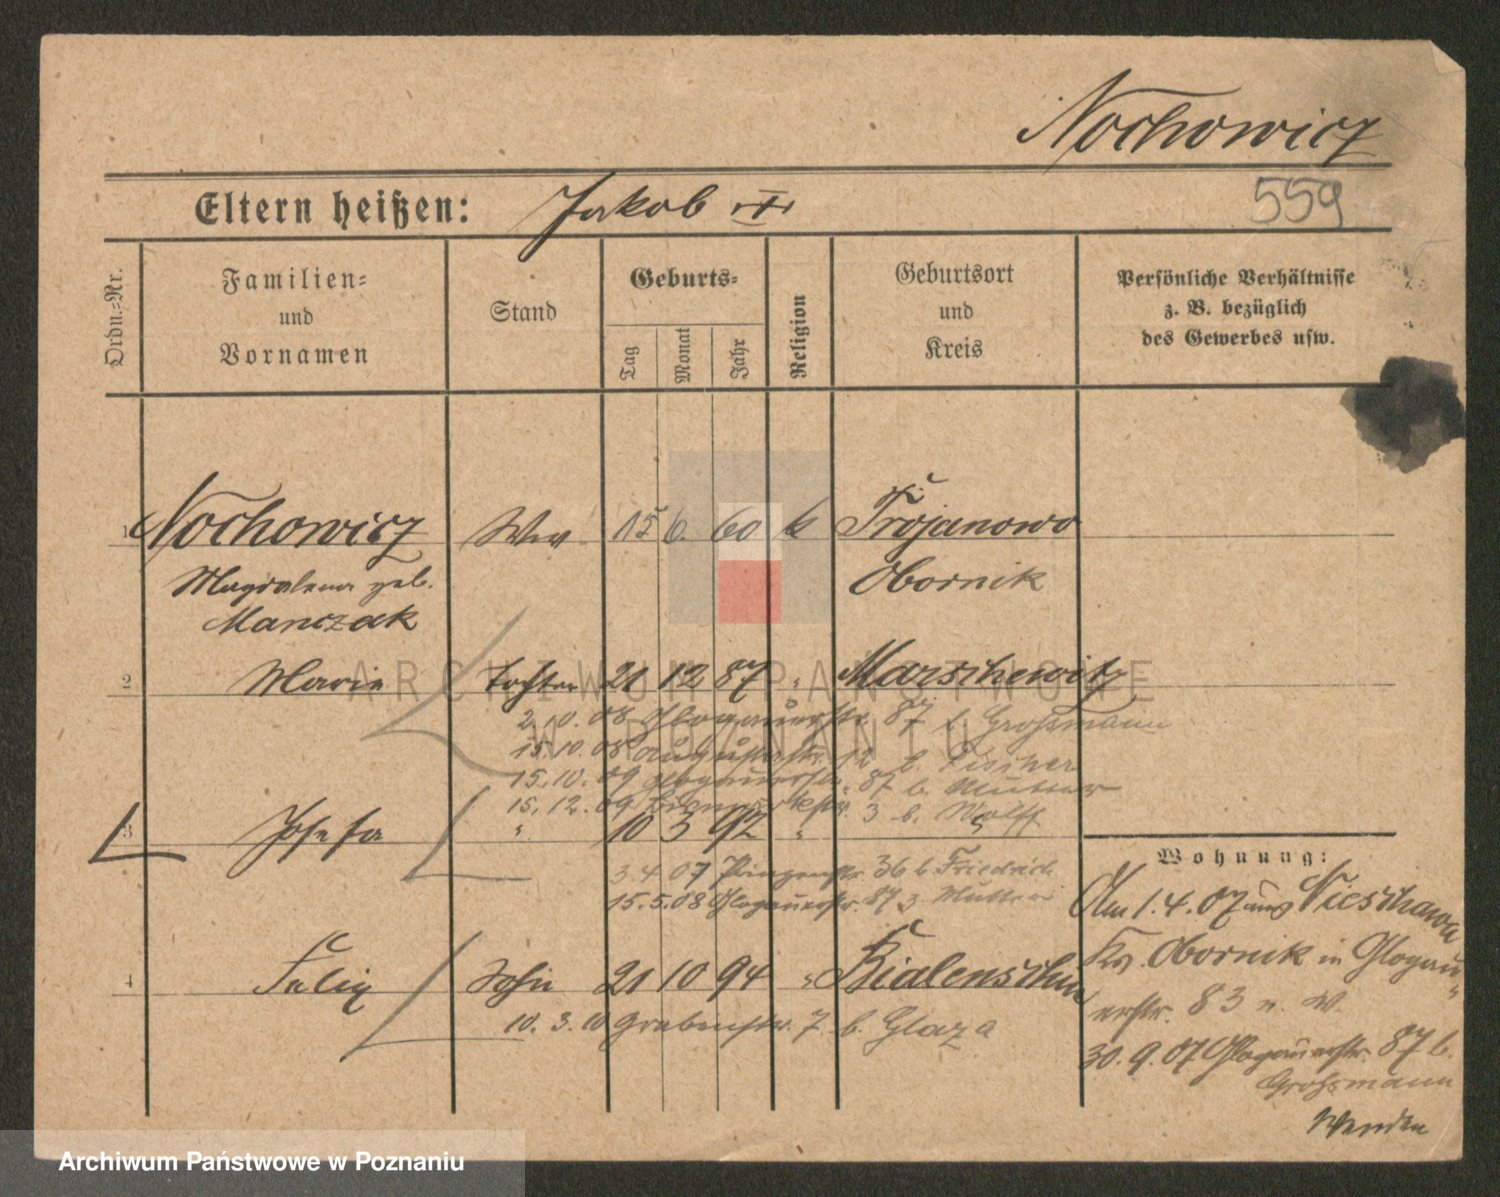 Nochowicz
Eltern heißen: Jakob
559
Ordn.=Nr.
Familien=
und
Vornamen
Stand
Geburts=
Tag
Monat
Jahr
Religion
Geburtsort
und
Kreis
Persönliche Verhältnisse
z. B. bezüglich
des Gewerbes usw.
1 Nochowicz Wwe 15 6. 60 k Trojanowo
Magdalena geb. Obornik
Manczak
2 Marie Tochter 21 12 87 " Marschewitz
2.10.08 Glogauerstr. 87 b. Grossmann
15.10.08 Augustastr. 12 b. Fischer
15.10.09 Glogauerstr. 87 b. Mutter
15.12.09 Bismarckstr. 3 b. Wolff
3 Josefa " 10 3 92 "
3.4.07 36 b Friedrich
15.5.08 Glogauerstr. 87 z. Mutter
4 Felix Sohn 21 10 94 "
10.3.10 Grabenstr. 7 b. Glaza
Wohnung:
Am 1.4.07 aus Nieschawa
Kr. Obornik in Glogau-
erstr. 83 n. W.
30.9.07 Glogauerstr. 87 b.
Grossmann
Wenden
ARCHIWUM PAŃSTWOWE
W POZNANIU
Archiwum Państwowe w Poznaniu